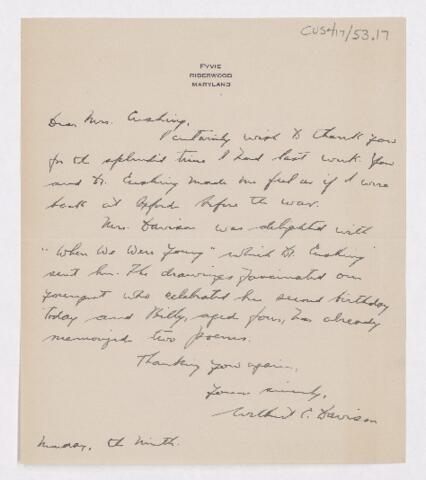 CUS417/53.17
FYVIE
RIDERWOOD
MARYLAND
Dear Mrs. Cushing,
I certainly wish to thank you
for the splendid time I had last week. You
and Dr. Cushing made me feel as if I were
back at Oxford before the war.
Mrs. Davison was delighted with
"When We Were Young" which Dr. Cushing
sent her. The drawings fascinated our
youngest who celebrated her second birthday
today and Billy, aged four, has already
memorized two poems.
Thanking you again,
Yours sincerely,
Wilburt C. Davison
Monday, the Ninth.